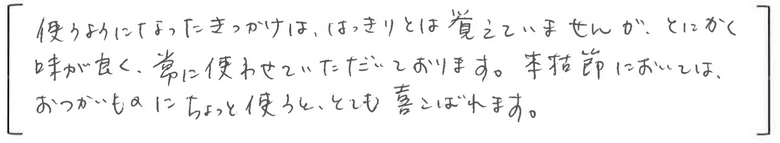 使うようになったきっかけは、はっきりとは覚えていませんが、とにかく
味が良く、常に使わせていただいております。本枯節においては、
おつかいものにちょっと使うと、とても喜こばれます。